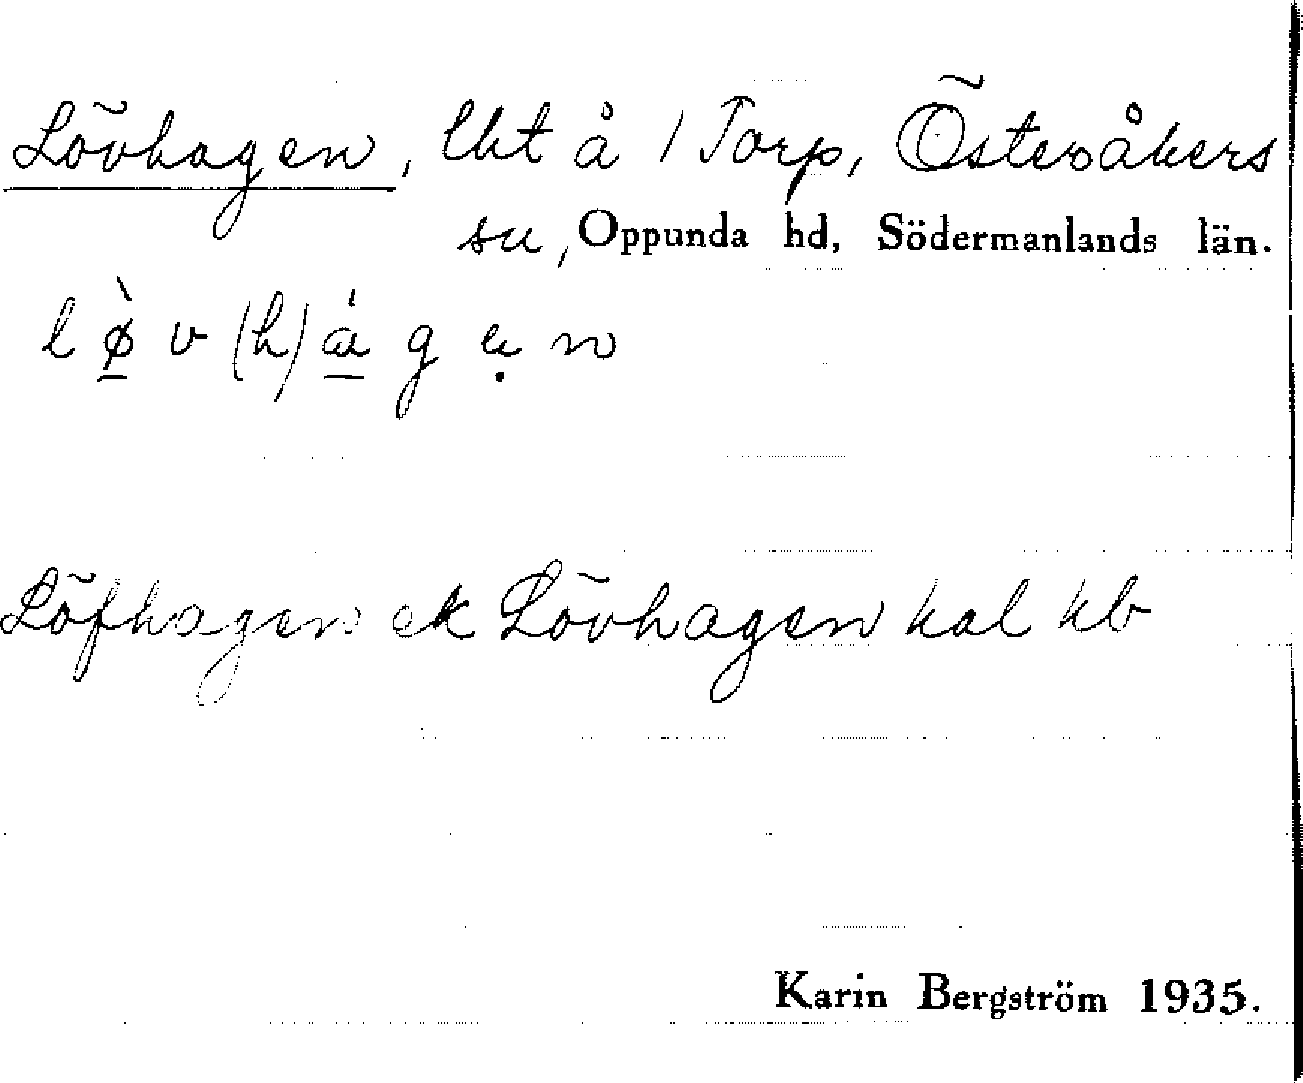 Lövhagen, lht å 1 Torp, Österåkers
sn, Oppunda hd, Södermanlands län.
l ø̀ v (h) á g ẹ n
Löfhagen ek Lövhagen kal kb
Karin Bergström 1935.